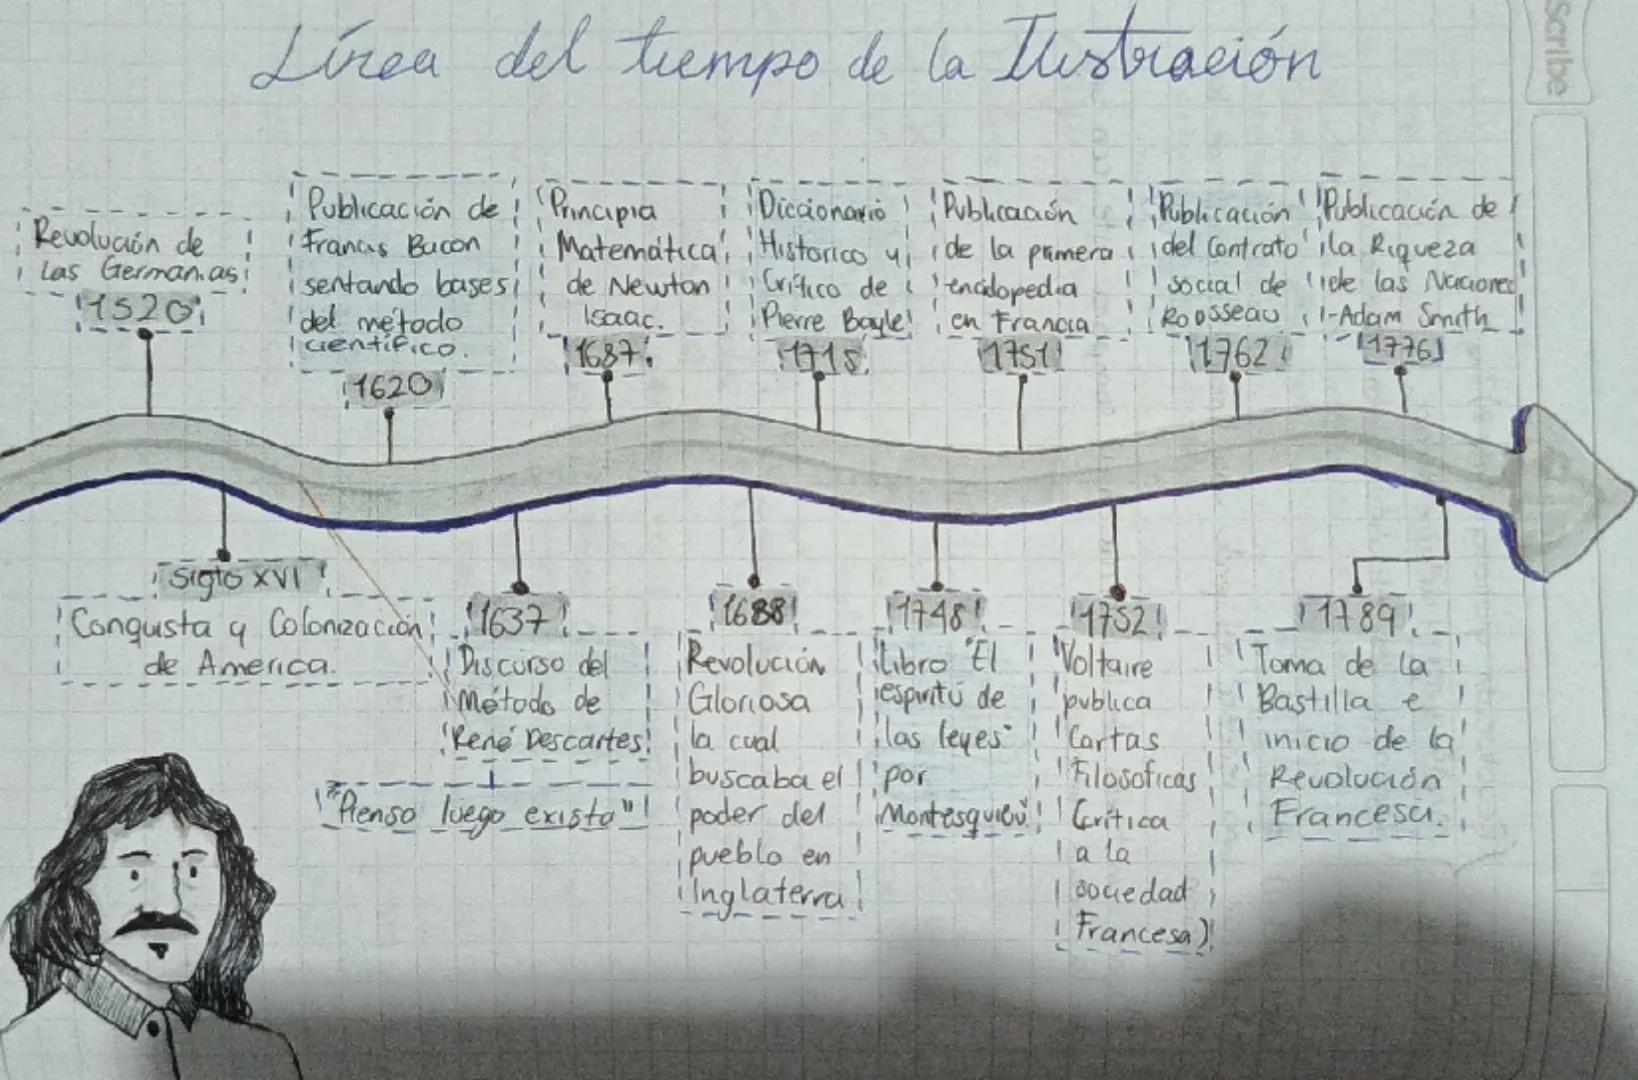 Línea del tiempo de la Ilustración
Scribe
Revolución de
Las Germanias
1520
Publicación de
Francis Bacon
sentando bases
del método
científico.
1620
Principia
Matemática
de Newton
Isaac.
1687
Diccionario
Historico y
Crítico de
Pierre Bayle
1715
Publicación
de la primera
enciclopedia
en Francia
1751
Publicación
del Contrato
social de
Roosseau
1762
Publicación de
la Riqueza
de las Naciones
-Adam Smith
1776
Siglo XVI
Conquista y Colonización
de America.
1637
Discurso del
Método de
René Descartes
"Pienso luego existo"
1688
Revolución
Gloriosa
la cual
buscaba el
poder del
pueblo en
Inglaterra
1748
Libro "El
espiritú de
las leyes"
por
Montesquieu
1752
Voltaire
publica
Cartas
Filosoficas
(Crítica
a la
sociedad
Francesa)
1789
Toma de la
Bastilla e
inicio de la
Revolución
Francesa.